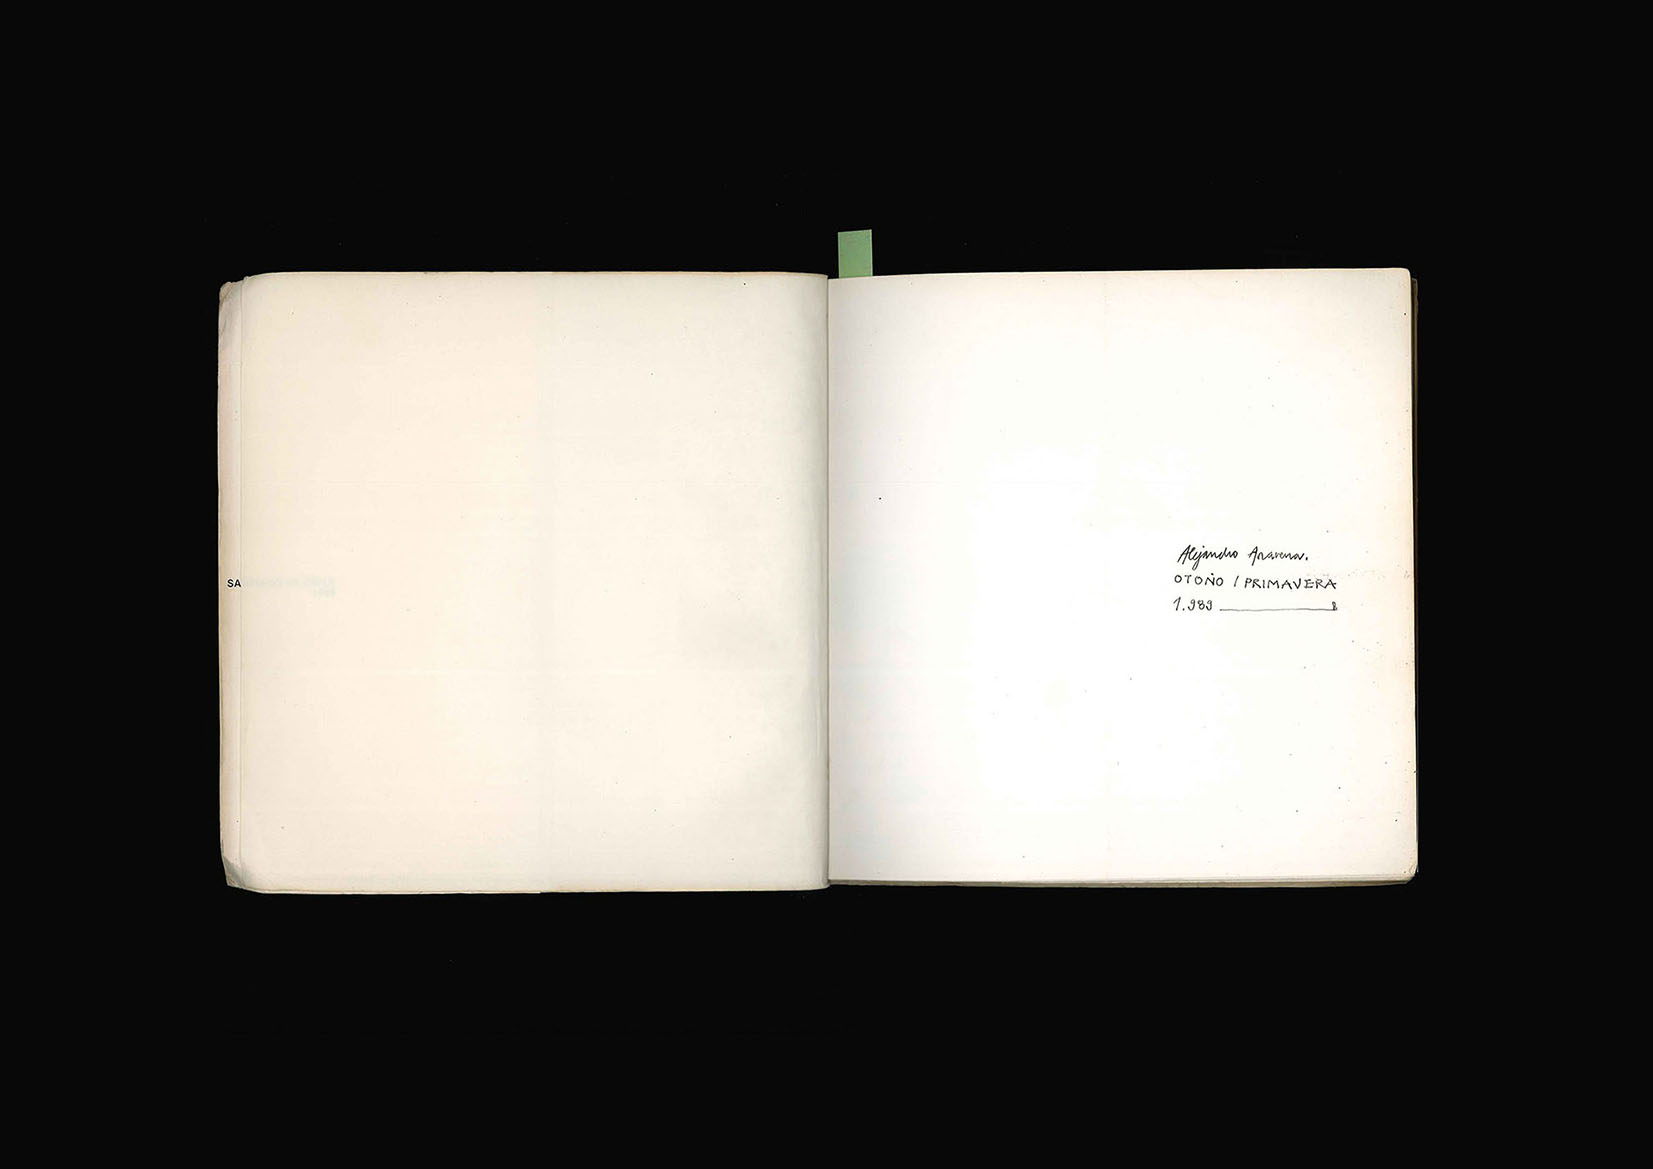 SA
Alejandro Aravena.
OTOÑO / PRIMAVERA
1.989